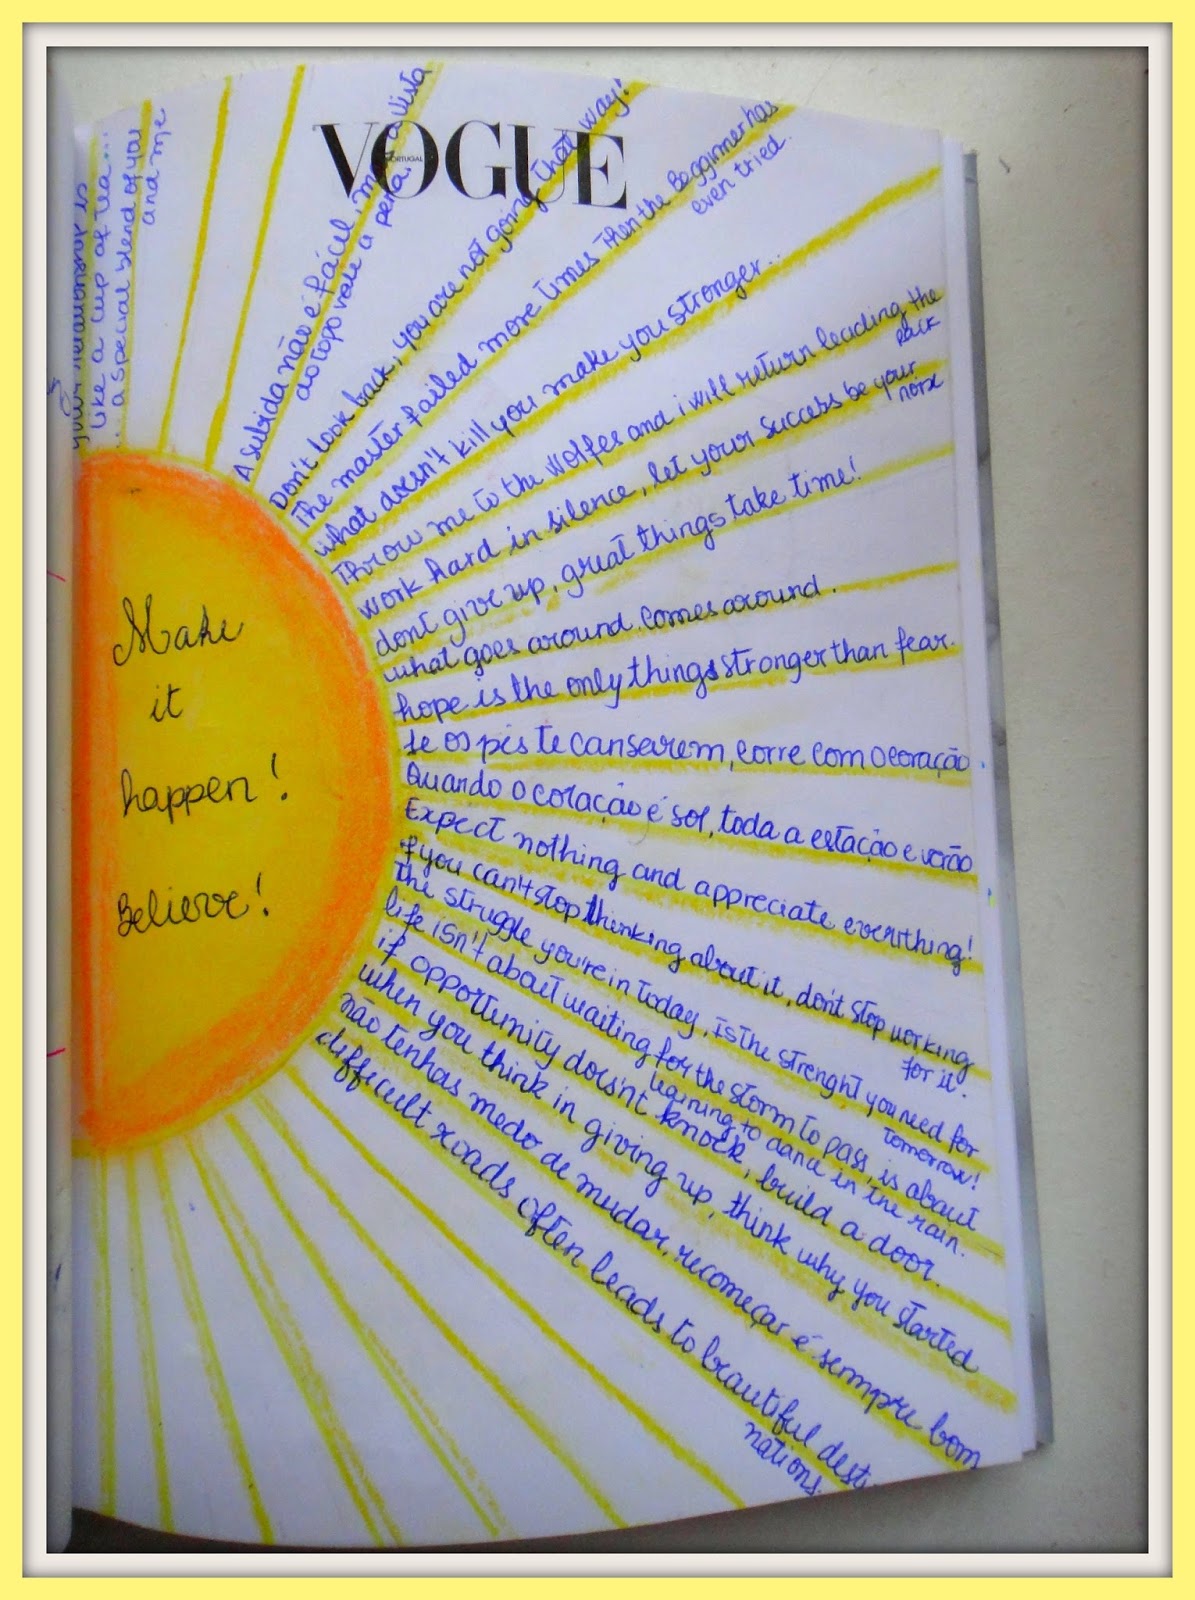 VOGUE
PORTUGAL
Make
it
happen!
Believe!
is
like a cup of tea...
... a special blend of you
and me
A subida não é fácil, mas a vista
ao topo vale a pena.
Don't look back, you are not going that way!
The master failed more times then the Begginer has
even tried.
what doesn't kill you make you stronger...
Throw me to the wolfes and i will return leading the
pack
work hard in silence, let your success be your
noise
dont give up, great things take time!
what goes around comes around.
hope is the only things stronger than fear.
se os pés te canserem, corre com o coração.
Quando o coração é sol, toda a estação e verão
Expect nothing and appreciate everithing!
if you can't stop thinking about it, don't stop working
for it.
The struggle you're in today, is the strenght you need for
tomorrow!
life isn't about waiting for the storm to pass, is about
learning to dance in the rain.
if opportunity doesn't knock, build a door.
when you think in giving up, think why you started
não tenhas medo de mudar, recomeçar é sempre bom
difficult roads often leads to beautiful desti
nations.